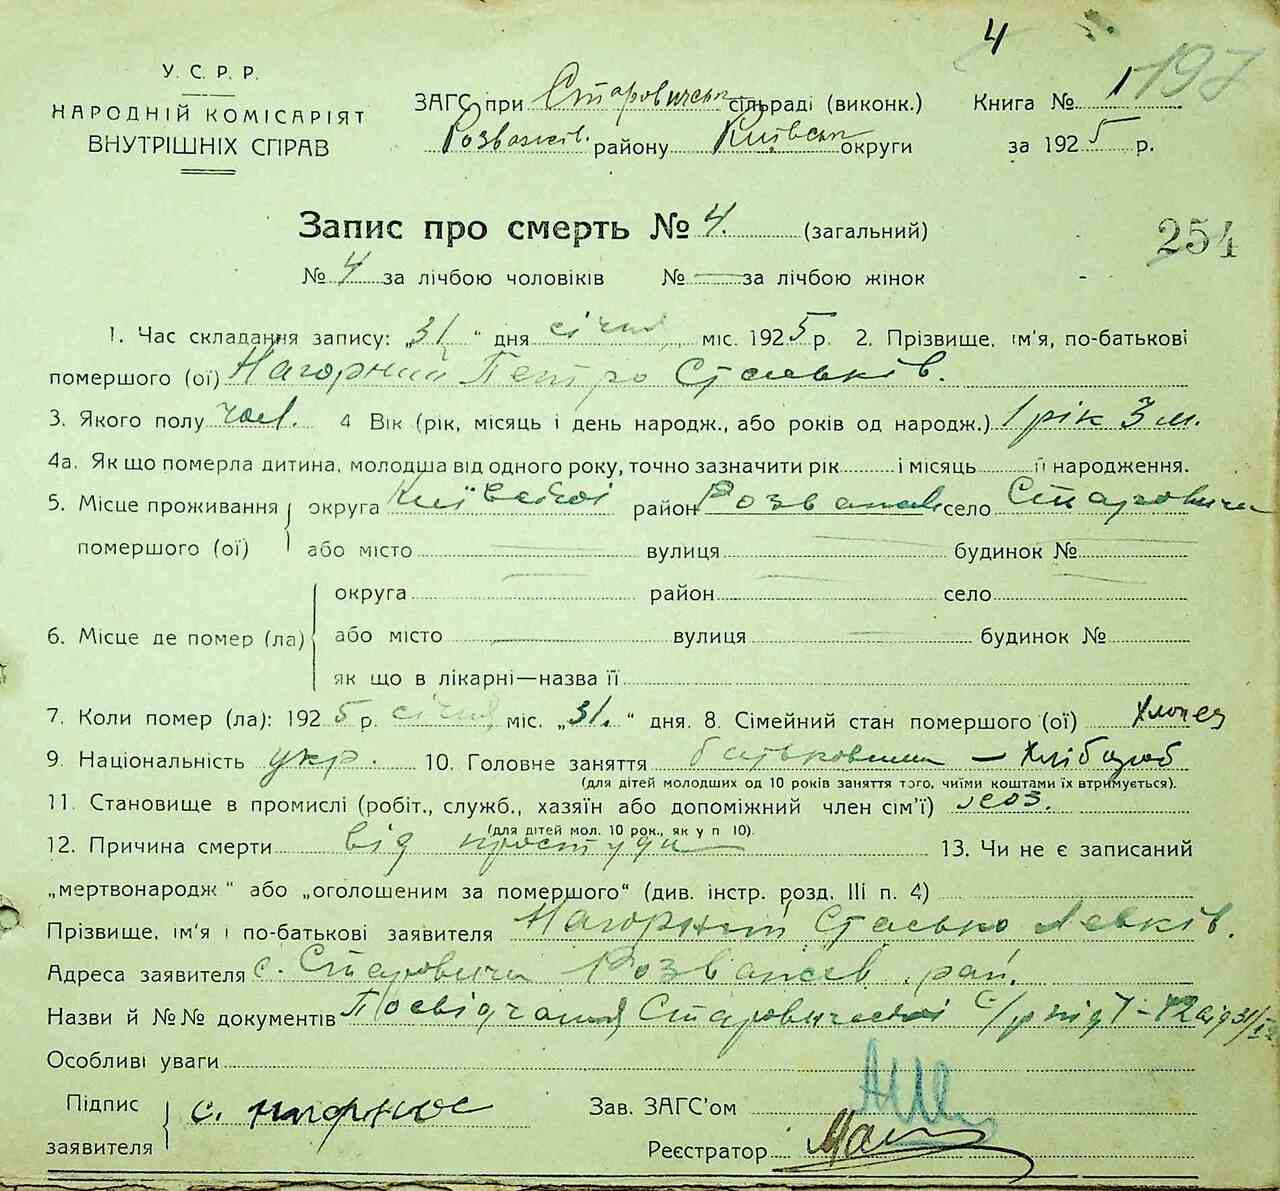 4
197
У. С. Р. Р.
НАРОДНІЙ КОМІСАРІЯТ
ВНУТРІШНІХ СПРАВ
ЗАГС при Старовичськ сільраді (виконк.) Книга № 1
Розважів. району Київськ округи за 1925 р.
Запис про смерть № 4. (загальний)
254
№ 4 за лічбою чоловіків № — за лічбою жінок
1. Час складання запису: „31" дня січня міс. 1925 р. 2. Прізвище, ім'я, по-батькові
помершого (ої) Нагорний Петро Стаськів.
3. Якого полу чол. 4 Вік (рік, місяць і день народж., або років од народж.) 1 рік 3 м.
4а. Як що померла дитина, молодша від одного року, точно зазначити рік і місяць її народження.
5. Місце проживання округа Київської район Розважів село Старовичи
помершого (ої) або місто вулиця будинок №
округа район село
6. Місце де помер (ла) або місто вулиця будинок №
як що в лікарні—назва її
7. Коли помер (ла): 1925 р. січня міс. „31." дня. 8. Сімейний стан помершого (ої) Хлопец
9. Національність укр. 10. Головне заняття батьковини — Хлібороб
(для дітей молодших од 10 років заняття того, чиїми коштами їх втримується).
11. Становище в промислі (робіт., служб., хазяїн або допоміжний член сім'ї)
(для дітей мол. 10 рок., як у п 10).
12. Причина смерти від простуди 13. Чи не є записаний
„мертвонародж" або „оголошеним за помершого" (див. інстр. розд. III п. 4)
Прізвище, ім'я і по-батькові заявителя Нагорний Стасько Левків.
Адреса заявителя с. Старовичи Розважев. рай.
Назви й №№ документів Посвідчання Старовичської С/р від 31/I
Особливі уваги
Підпис
заявителя
С. Нагорное
Зав. ЗАГС'ом
Реєстратор